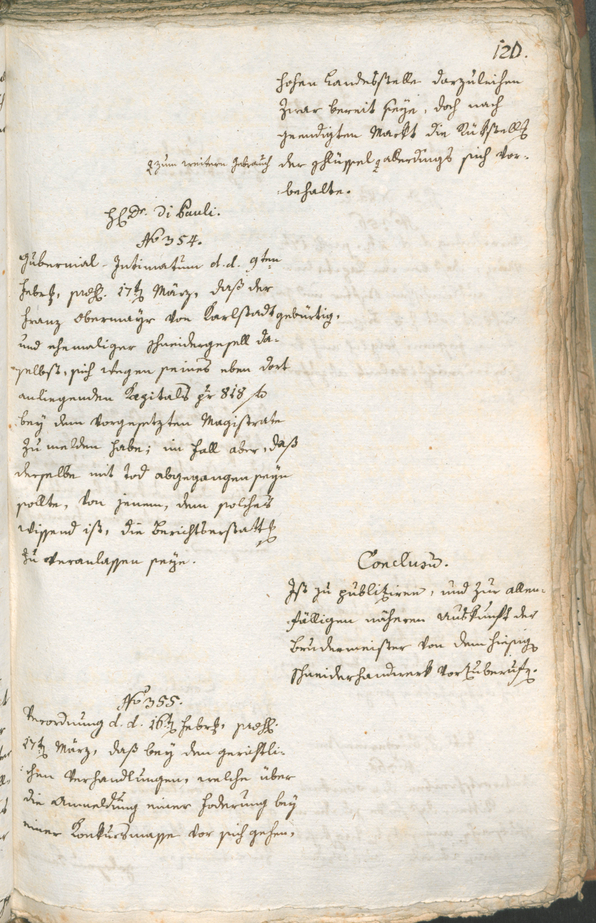 120.
hohen Landesstelle darzuleihen
zwar bereit seÿe, doch nach
geendigten Markt die Rükstellg
der Schlüssel allerdings sich vor-
zum weitern Gebrauch
behalte.
H. Dr. Di Pauli.
No 354.
Gubernial-Intimatum d. d. 9ten
Febr., praes. 17ten März, daß der
Franz Obermaÿr von Karlstadt gebürtig,
und ehemaliger Schneidergesell da-
selbst, sich wegen seines eben dort
anliegenden Kapitals pr 818 f
beÿ dem vorgesetzten Magistrate
zu melden habe; im Fall aber, daß
derselbe mit Tod abgegangen seÿn
sollte, von jenem, dem solches
wissend ist, die Berichterstattg
zu veranlassen seÿe.
Conclusum.
Ist zu publiziren, und zur allen-
fälligen näheren Auskunft der
Brudermeister von dem hiesig
Schneiderhandwerk vorzuberufen.
No 355.
Verordnung d. d. 16ten Febr., praes.
17ten März, daß beÿ den gerichtli-
chen Verhandlungen, welche über
die Anmeldung einer Foderung beÿ
einer Konkursmasse vor sich gehen,